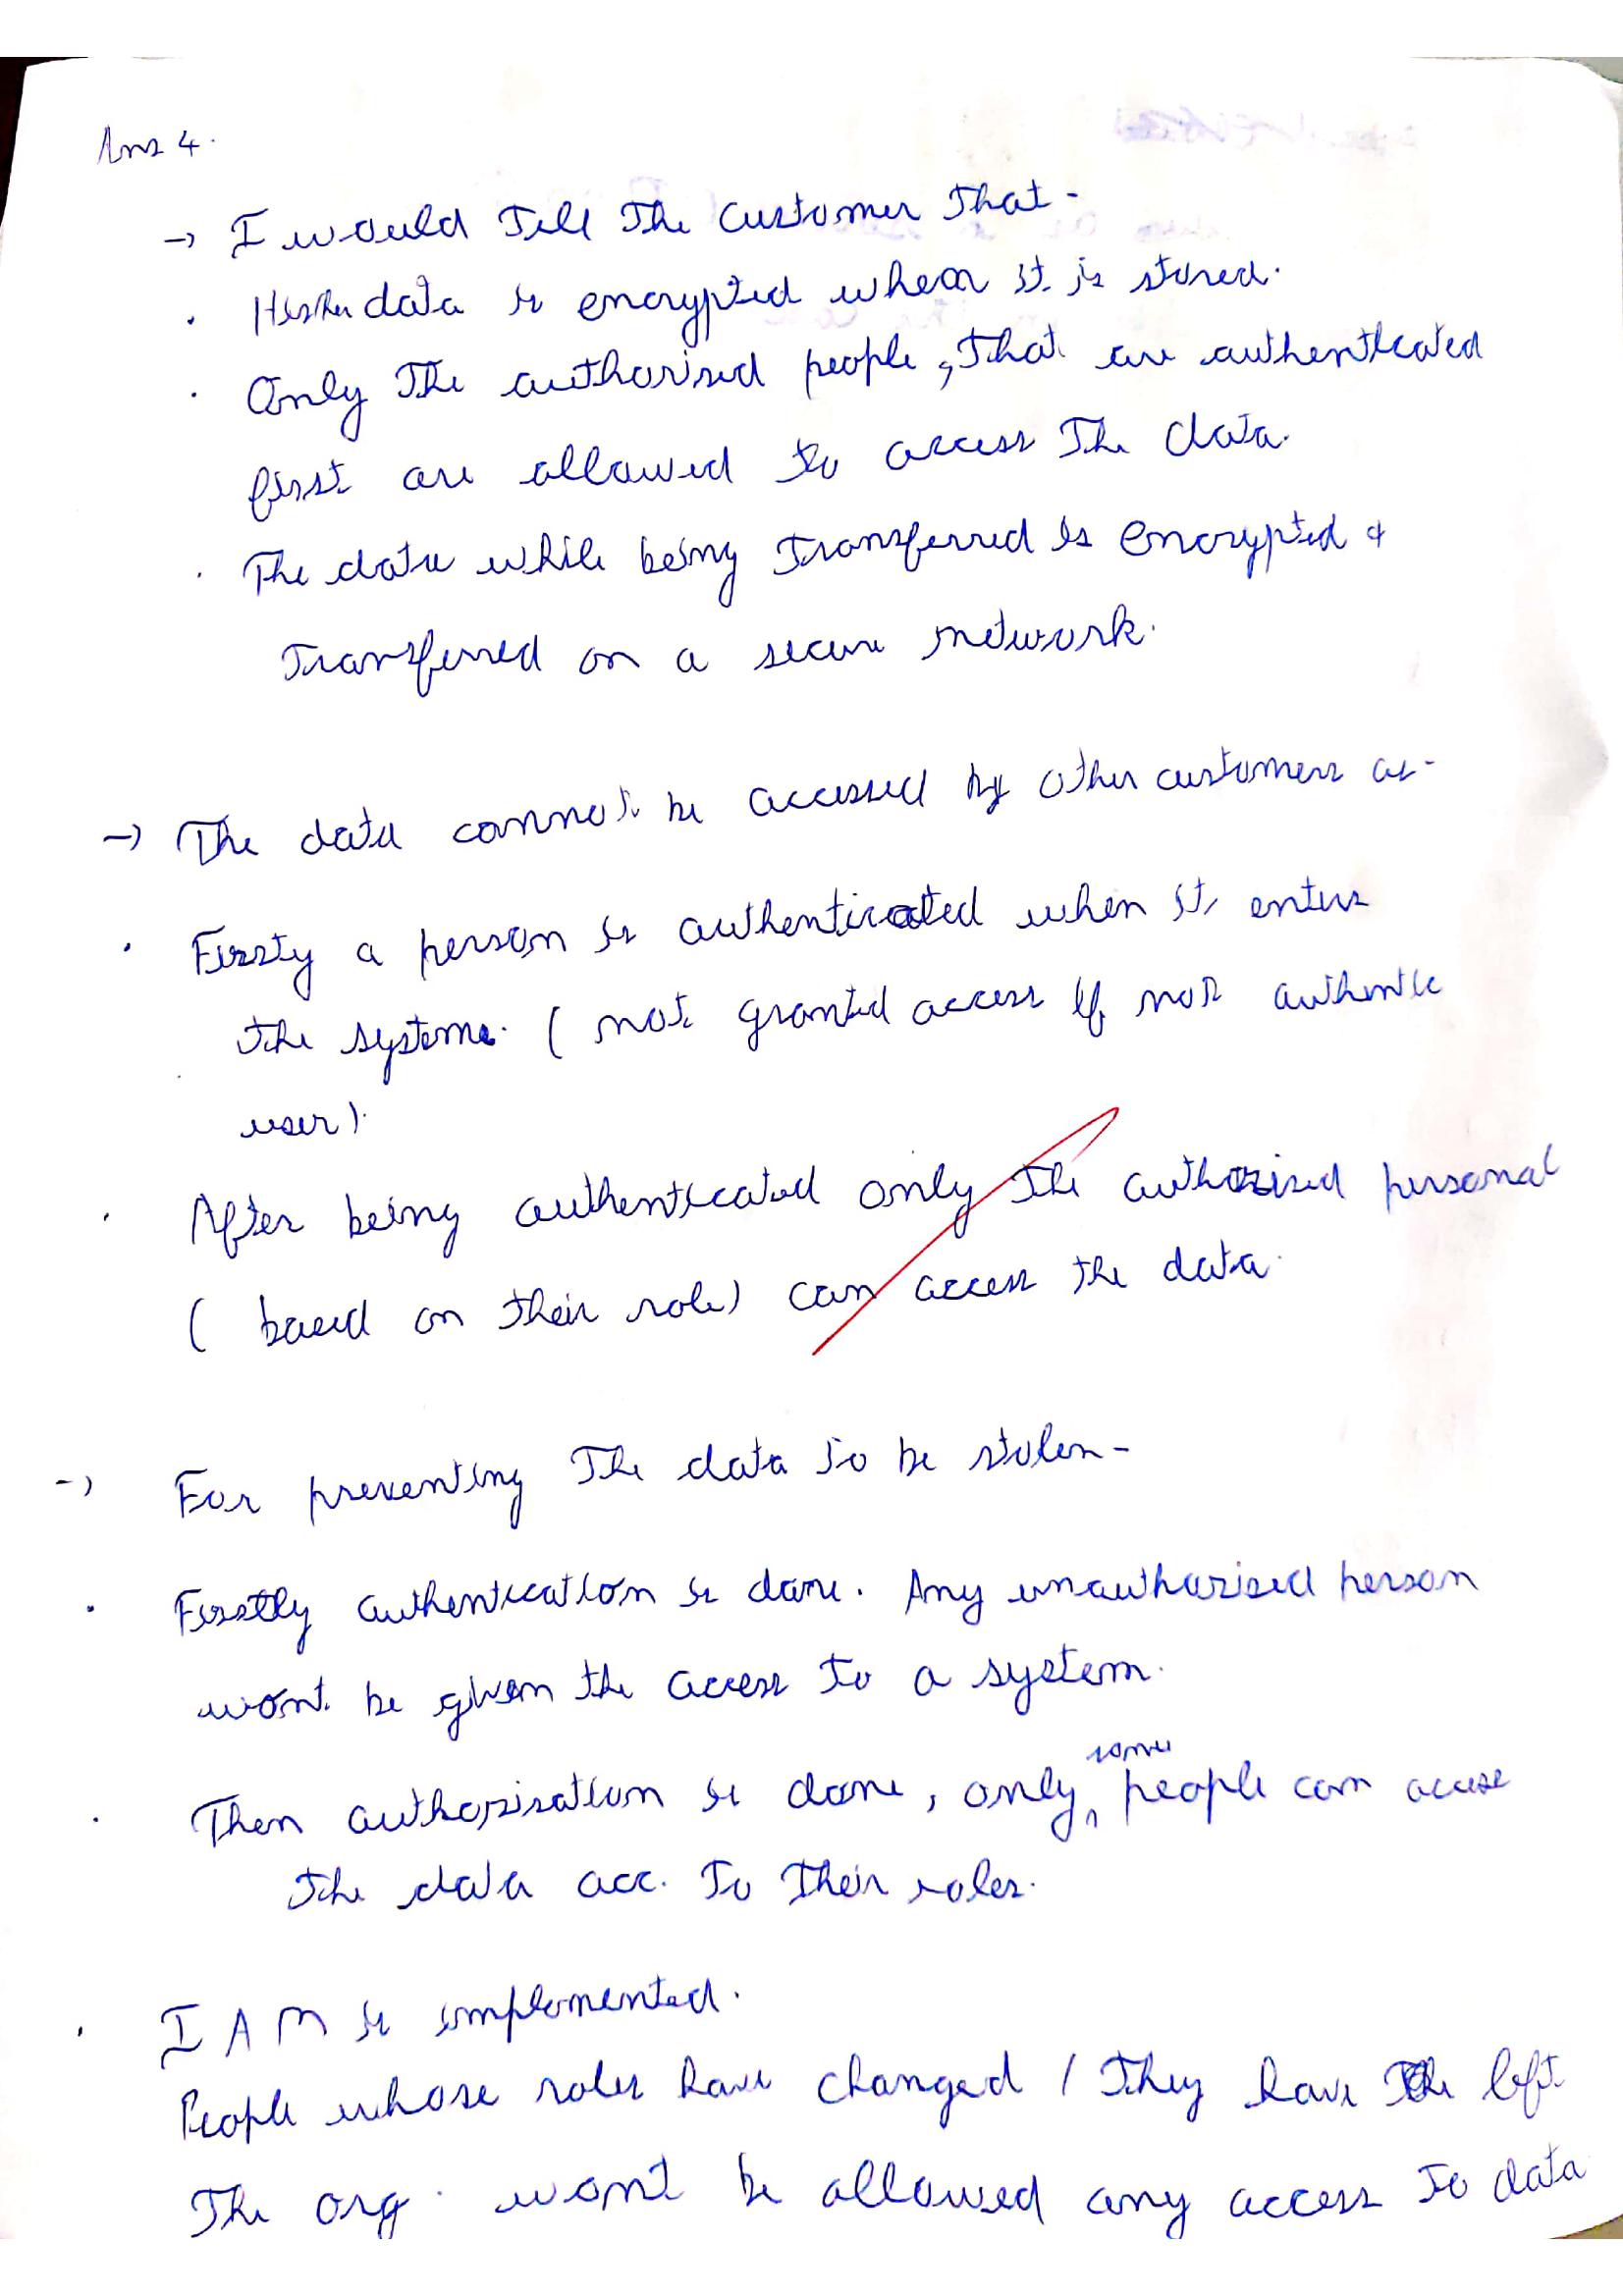 Ans 4.
→ I would Tell The Customer That -
. His/her data is encrypted when it is stored.
. Only The authorised people, That are authenticated
first are allowed to access The data.
. The data while being Transferred is encrypted &
Transferred on a secure network.
→ The data cannot be accessed by other customers as -
. Firsty a person is authenticated when it enters
the system. ( not granted access if not authentic
user).
. After being authenticated only The authorised personal
( based on their role) can access the data.
→ For preventing The data to be stolen -
. Firstly authentication is done. Any unauthorised person
wont be given the access To a system.
. Then authorisation is done, only some people can access
The data acc. To Their roles.
. IAM is implemented.
People whose roles have changed / They have left
The org. wont be allowed any access To data